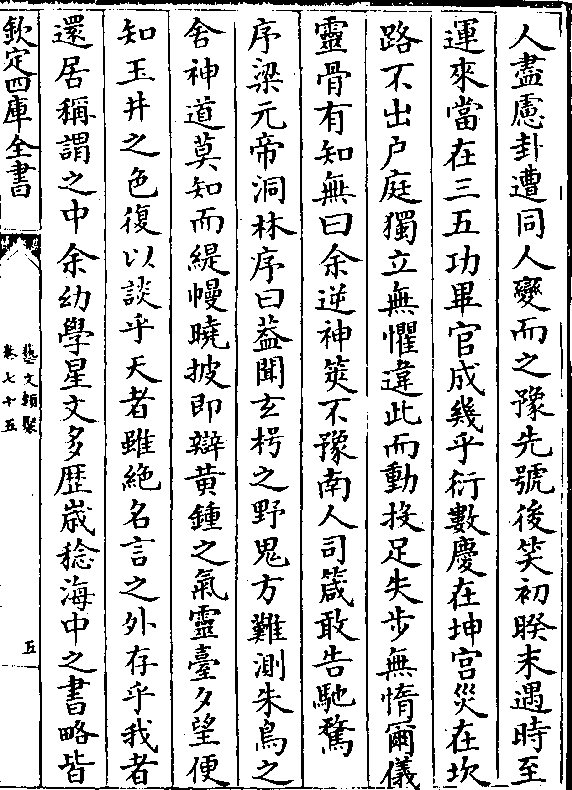 人盡慮卦遭同人變而之豫先號後笑初睽末遇時至
運來當在三五功畢官成幾乎衍數慶在坤宫災在坎
路不出户庭獨立無懼違此而動投足失步無惰爾儀
靈骨有知無曰余逆神筴不豫南人司箴敢告馳騖
序梁元帝洞林序曰葢聞玄枵之野鬼方難測朱鳥之
舍神道莫知而緹幔曉披即辯黄鍾之氣靈臺夕望便
知玉井之色復以談乎天者雖絶名言之外存乎我者
還居稱謂之中余幼學星文多歴歳稔海中之書略皆
欽定四庫全書
藝文類聚
卷七十五
五